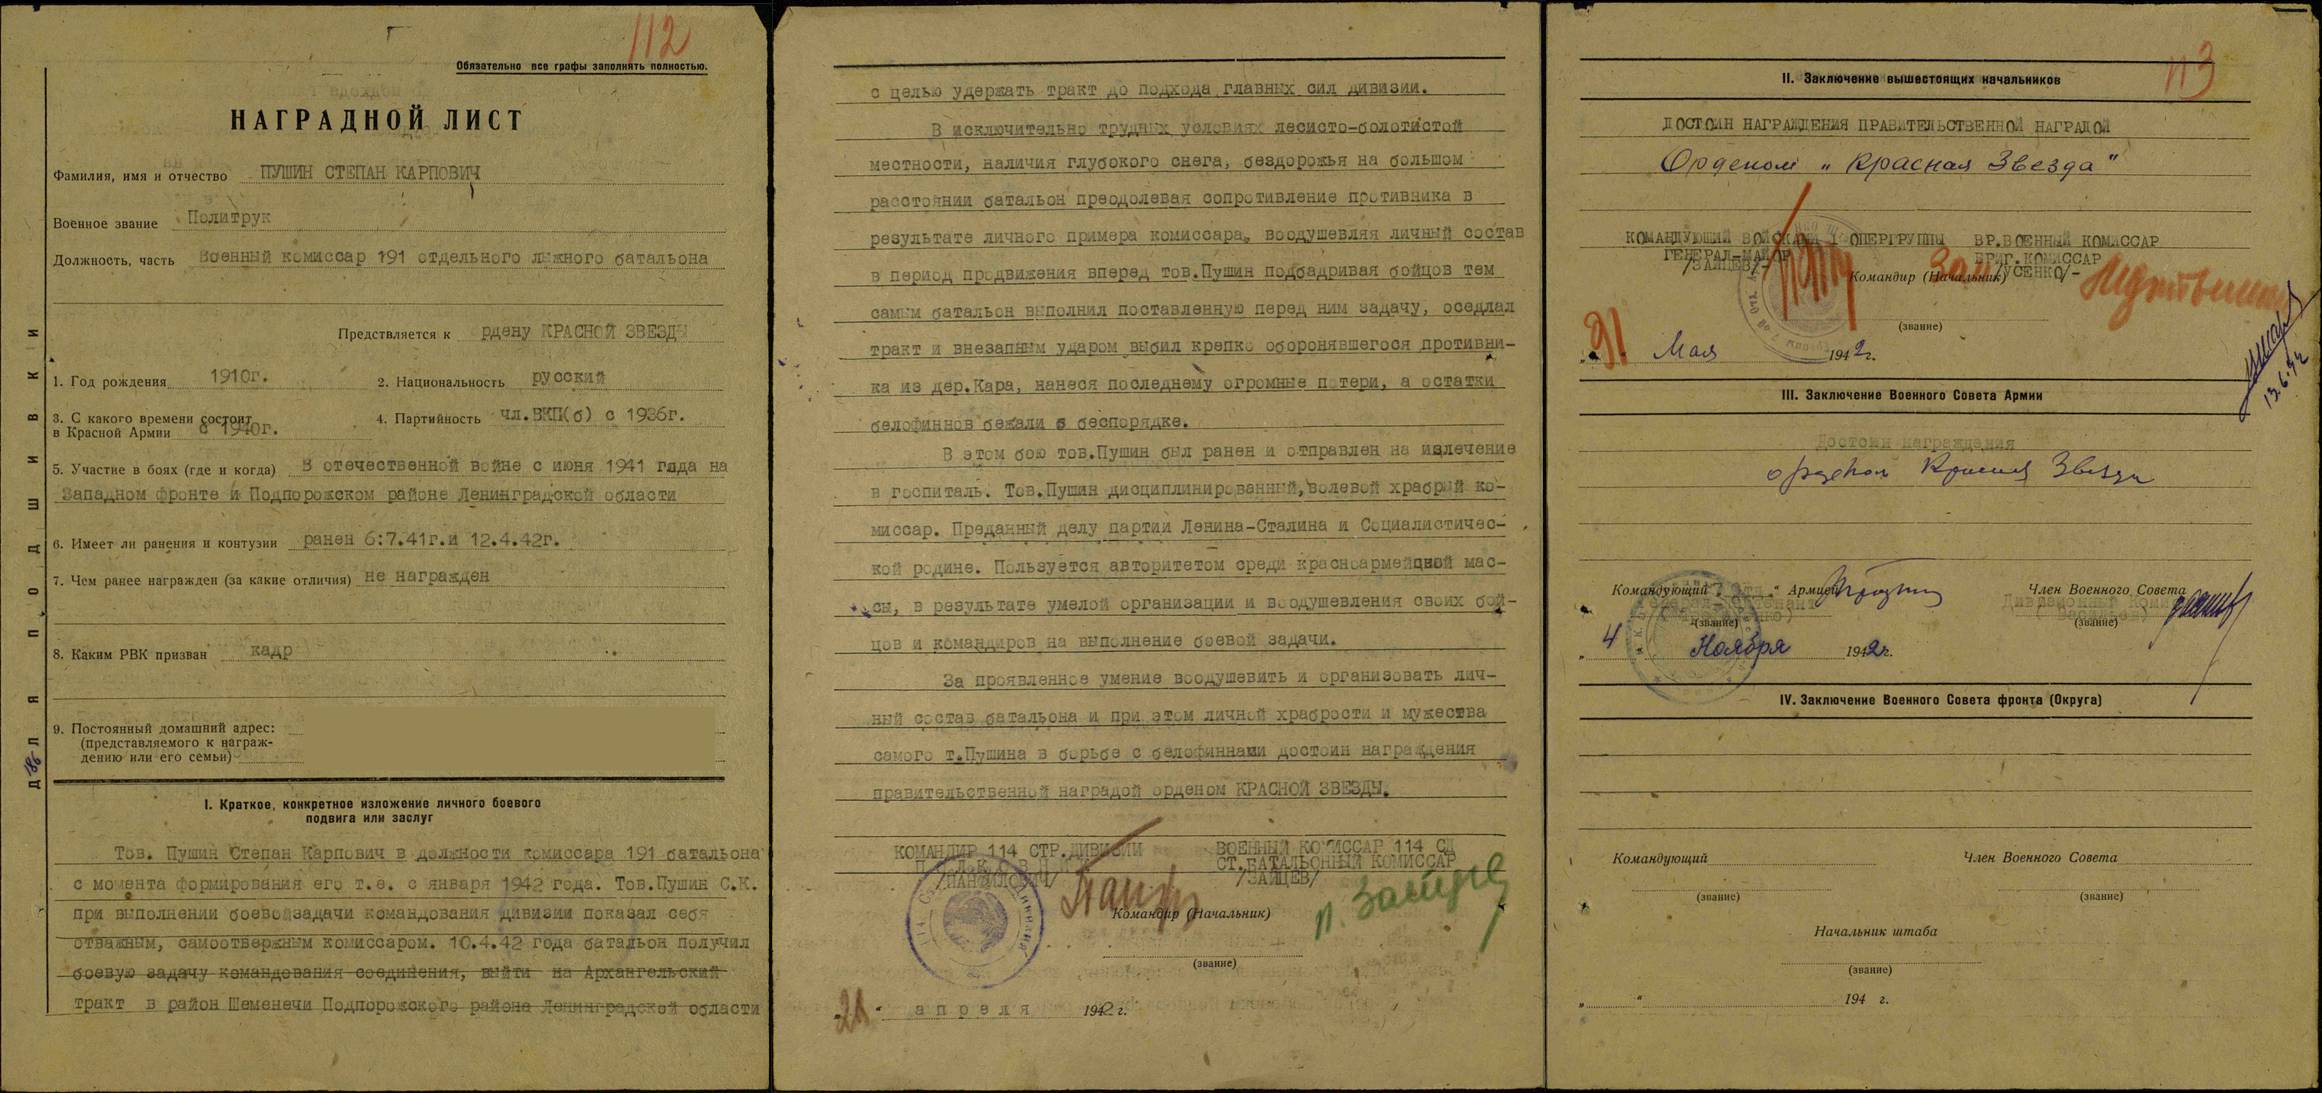 112
Обязательно все графы заполнять полностью.
НАГРАДНОЙ ЛИСТ
Фамилия, имя и отчество ПУШИН СТЕПАН КАРПОВИЧ
Военное звание Политрук
Должность, часть Военный комиссар 191 отдельного лыжного батальона
Предствляется к рдену КРАСНОЙ ЗВЕЗДЫ
1. Год рождения 1910г. 2. Национальность русский
3. С какого времени состоит
в Красной Армии с 1940г.
4. Партийность чл.ВКП(б) с 1936г.
5. Участие в боях (где и когда) В отечественной войне с июня 1941 года на
Западном фронте и Подпорожском районе Ленинградской области
6. Имеет ли ранения и контузии ранен 6:7.41г.и 12.4.42г.
7. Чем ранее награжден (за какие отличия) не награжден
8. Каким РВК призван кадр
9. Постоянный домашний адрес:
(представляемого к награж-
дению или его семьи)
ДЛЯ ПОДШИВКИ
I. Краткое, конкретное изложение личного боевого
подвига или заслуг
Тов. Пушин Степан Карпович в должности комиссара 191 батальона
с момента формирования его т.е. с января 1942 года. Тов.Пушин С.К.
при выполнении боевойзадачи командования дивизии показал себя
отважным, самоотвержным комиссаром. 10.4.42 года батальон получил
боевую задачу командования соединения, выйти на Архангельский
тракт в район Шеменечи Подпорожского района Ленинградской области
с целью удержать тракт до подхода главных сил дивизии.
В исключительно трудных условиях лесисто-болотистой
местности, наличия глубокого снега, бездорожья на большом
расстоянии батальон преодолевая сопротивление противника в
результате личного примера комиссара, воодушевляя личный состав
в период продвижения вперед тов.Пушин подбадривая бойцов тем
самым батальон выполнил поставленную перед ним задачу, оседлал
тракт и внезапным ударом выбил крепко оборонявшегося противни-
ка из дер.Кара, нанеся последнему огромные потери, а остатки
белофиннов бежали в беспорядке.
В этом бою тов.Пушин был ранен и отправлен на излечение
в госпиталь. Тов.Пушин дисциплинированный,волевой храбрый ко-
миссар. Преданный делу партии Ленина-Сталина и Социалистичес-
кой родине. Пользуется авторитетом среди красноармейской мас-
сы, в результате умелой организации и воодушевления своих бой-
цов и командиров на выполнение боевой задачи.
За проявленное умение воодушевить и организовать лич-
ный состав батальона и при этом личной храбрости и мужества
самого т.Пушина в борьбе с белофиннами достоин награждения
правительственной наградой орденом КРАСНОЙ ЗВЕЗДЫ.
КОМАНДИР 114 СТР.ДИВИЗИИ ВОЕННЫЙ КОМИССАР 114 СД
ПОЛКОВНИК СТ.БАТАЛЬОННЫЙ КОМИССАР
/ПАНФИЛОВИЧ/ /ЗАЙЦЕВ/
Командир (Начальник)
(звание)
апреля 1942 г.
113
II. Заключение вышестоящих начальников
ДОСТОИН НАГРАЖДЕНИЯ ПРАВИТЕЛЬСТВЕННОЙ НАГРАДОЙ
Орденом „Красная Звезда"
КОМАНДУЮЩИЙ ВОЙСКАМИ ОПЕРГРУППЫ ВР.ВОЕННЫЙ КОМИССАР
ГЕНЕРАЛ-МАЙОР БРИГ.КОМИССАР
/ЗАЙЦЕВ/- /УСЕНКО/-
Командир (Начальник)
(звание)
31 Мая 1942г.
13.6.42
III. Заключение Военного Совета Армии
Достоин награждения
орденом Красная Звезда
Командующий 7 Отд. Армией Член Военного Совета
(звание) (звание)
„4 Ноября 1942г.
IV. Заключение Военного Совета фронта (Округа)
Командующий Член Военного Совета
(звание) (звание)
Начальник штаба
(звание)
„ “ 194 г.